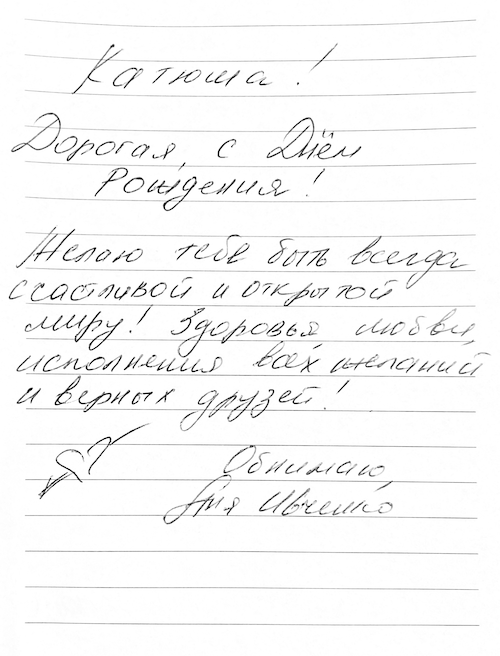 Катюша!
Дорогая, с Днём
Рождения!
Желаю тебе быть всегда
счастливой и открытой
миру! Здоровья, любви,
исполнения всех желаний
и верных друзей!
Обнимаю,